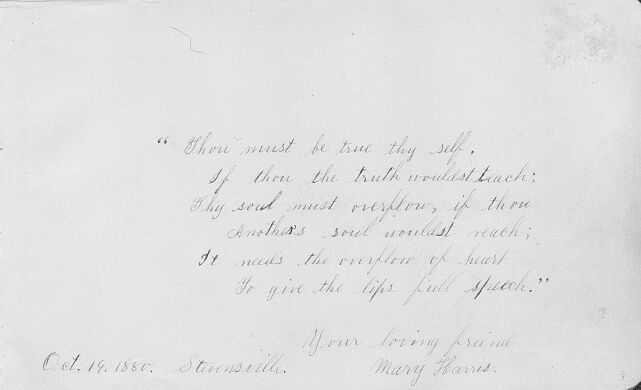 "Thou must be true thy self,
If thou the truth wouldst teach;
Thy soul must overflow, if thou
Another's soul wouldst reach;
It needs the overflow of heart
To give the lips full speech."
Your loving friend
Oct. 19. 1880. Stevensville. Mary Harris.